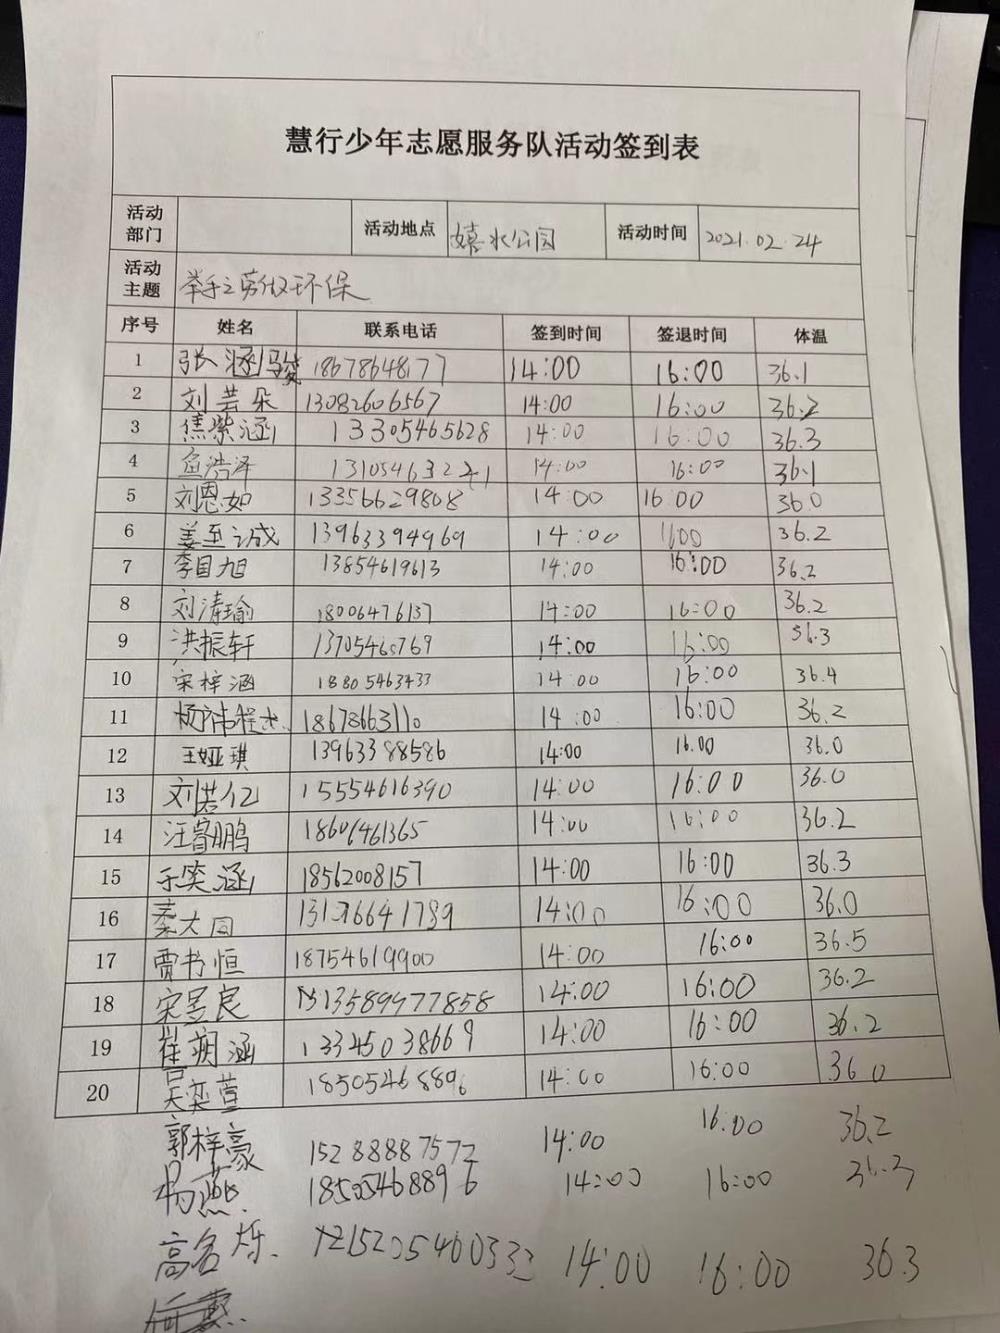 慧行少年志愿服务队活动签到表
活动部门 活动地点 嬉水公园 活动时间 2021.02.24
活动主题 举手之劳做环保
序号 姓名 联系电话 签到时间 签退时间 体温
1 张涵骏 18678648177 14:00 16:00 36.1
2 刘芸朵 13082606567 14:00 16:00 36.2
3 焦紫涵 13305465628 14:00 16:00 36.3
4 鱼浩泽 14:00 16:00 36.1
5 刘恩如 13356629808 14:00 16:00 36.0
6 姜至诚 13963394969 14:00 1600 36.2
7 李目旭 13854619613 14:00 16:00 36.2
8 刘涛瑜 18006476137 14:00 16:00 36.2
9 洪振轩 13705460769 14:00 16:00 36.3
10 宋梓涵 18805463433 14:00 16:00 36.4
11 18678663110 14:00 16:00 36.2
12 王娅琪 13963388586 14:00 16.00 36.0
13 刘若亿 15554616390 14:00 16:00 36.0
14 汪睿鹏 18601461365 14:00 16:00 36.2
15 于奕涵 18562008157 14:00 16:00 36.3
16 秦大同 14:00 16:00 36.0
17 贾书恒 18754619900 14:00 16:00 36.5
18 宋昱良 13589977858 14:00 16:00 36.2
19 崔朔涵 13345038669 14:00 16:00 36.2
20 吴奕萱 18505468896 14:00 16:00 36.0
郭梓豪 15288887572 14:00 16:00 36.2
杨燕 18505468896 14:00 16:00 36.3
高名烁 15205460333 14:00 16:00 36.3